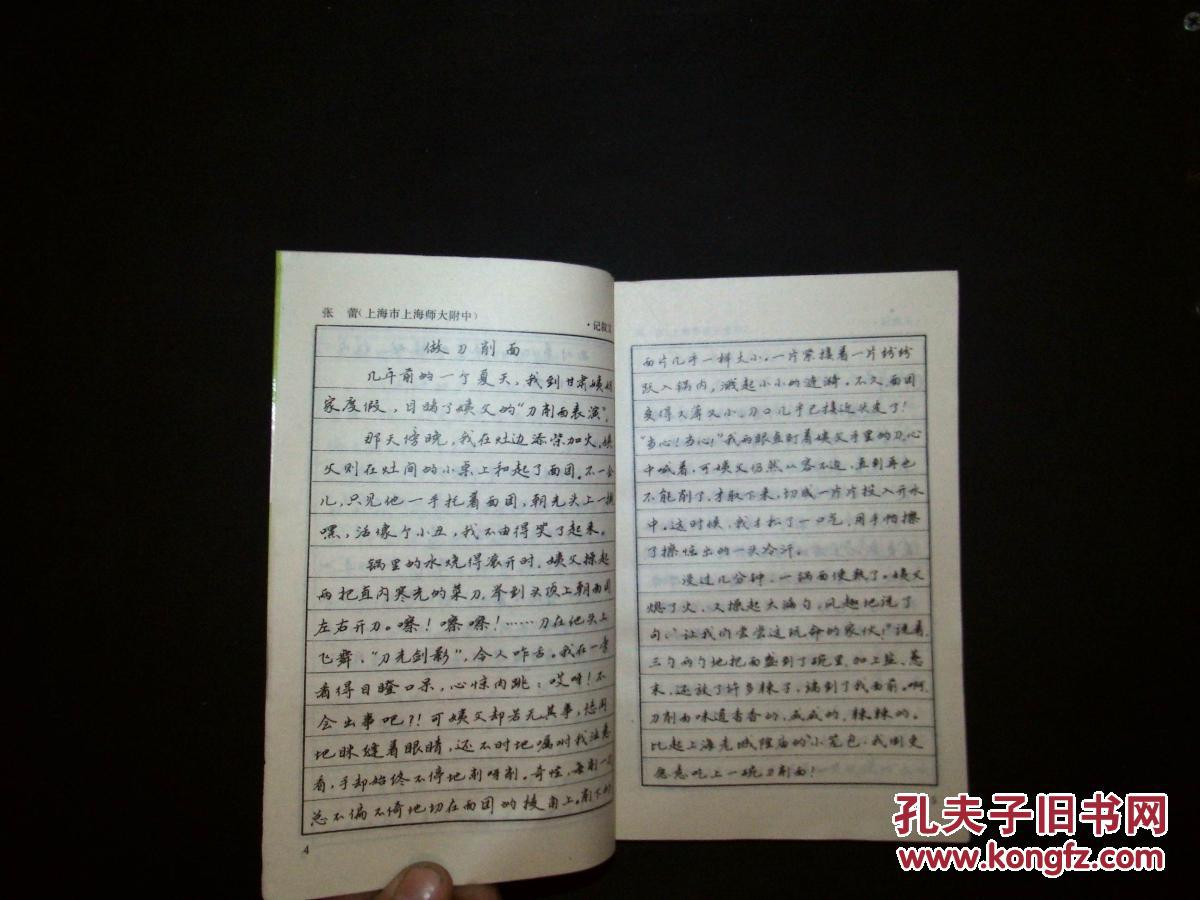 张 蕾(上海市上海师大附中)
·记叙文
做刀削面
几年前的一个夏天，我到甘肃姨妈
家度假，目睹了姨父的“刀削面表演”。
那天傍晚，我在灶边添柴加火，姨
父则在灶间的小桌上和起了面团。不一会
儿，只见他一手托着面团，朝光头上一
嘿，活像个小丑，我不由得笑了起来。
锅里的水烧得滚开时，姨父操起
两把直闪寒光的菜刀，举到头顶上朝面团
左右开刀。嚓！嚓嚓！……刀在他头上
飞舞，“刀光剑影”，令人咋舌。我在一旁
看得目瞪口呆，心惊肉跳：哎呀！不
会出事吧？！可姨父却若无其事，悠闲
地眯缝着眼睛，还不时地嘱咐我注意
看，手却始终不停地削呀削。奇怪，每削一
总不偏不倚地切在面团的棱角上。削下的
4
面片几乎一样大小。一片紧接着一片纷纷
跃入锅内，溅起小小的涟漪。不久，面团
变得又薄又小，刀口几乎已接近头皮了！
“当心！当心！”我两眼直盯着姨父手里的刀，心
中喊着，可姨父仍然从容不迫，直到再也
不能削了，才取下来，切成一片片投入开水
中。这时候，我才松了一口气，用手帕擦
了擦惊出的一头冷汗。
没过几分钟，一锅面便熟了。姨父
熄了火，又操起大漏勺，风趣地说了
句：“让我们尝尝这玩命的家伙！”说着，
三勺两勺地把面盛到了碗里，加上盐、葱
末，还放了许多辣子，端到了我面前。啊，
刀削面味道香香的，咸咸的，辣辣的。
比起上海老城隍庙的小笼包，我倒更
愿意吃上一碗刀削面！
孔夫子旧书网
www.kongfz.com